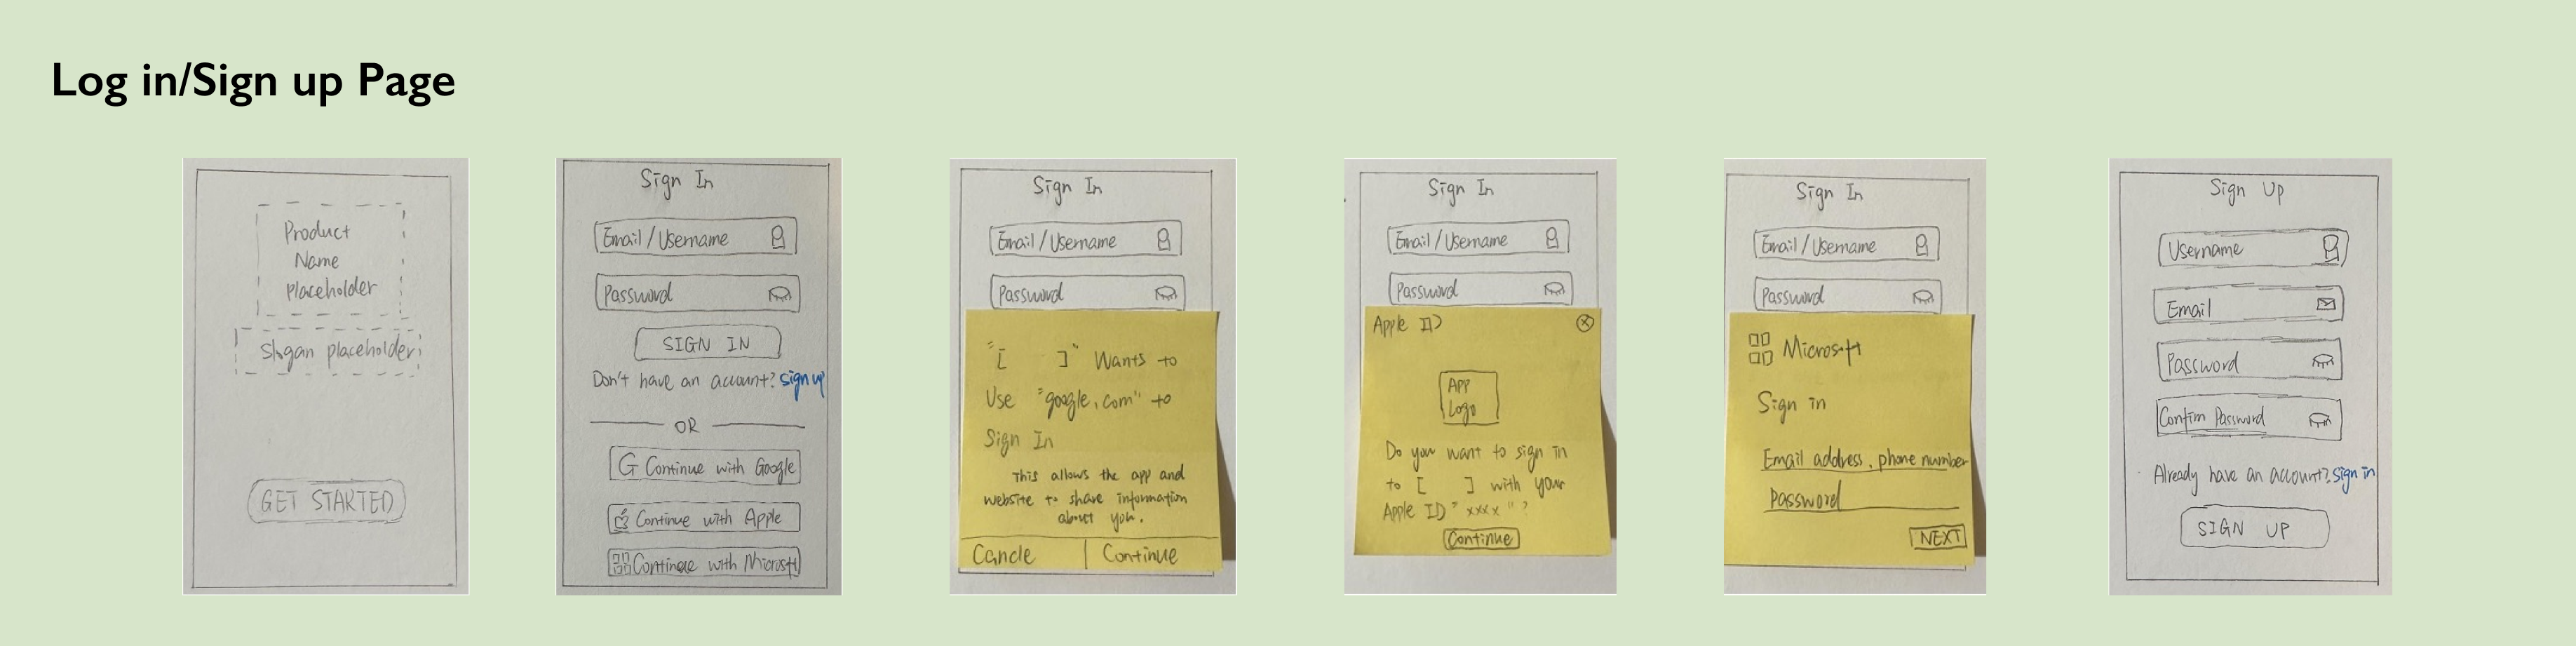 Log in/Sign up Page
Product
Name
placeholder
Slogan placeholder
GET STARTED
Sign In
Email/Username
Password
SIGN IN
Don't have an account? sign up
OR
G Continue with Google
Continue with Apple
Continue with Microsft
Sign In
Email/Username
Password
"[ ]" Wants to
Use "google.com" to
Sign In
This allows the app and
website to share information
about you.
Cancle | Continue
Sign In
Email/Username
Password
Apple ID
APP
Logo
Do you want to sign in
to [ ] with your
Apple ID "xxxx"?
Continue
Sign In
Email/Username
Password
Microsoft
Sign in
Email address, phone number
Password
NEXT
Sign Up
Username
Email
Password
Confirm Password
Already have an account? sign in
SIGN UP